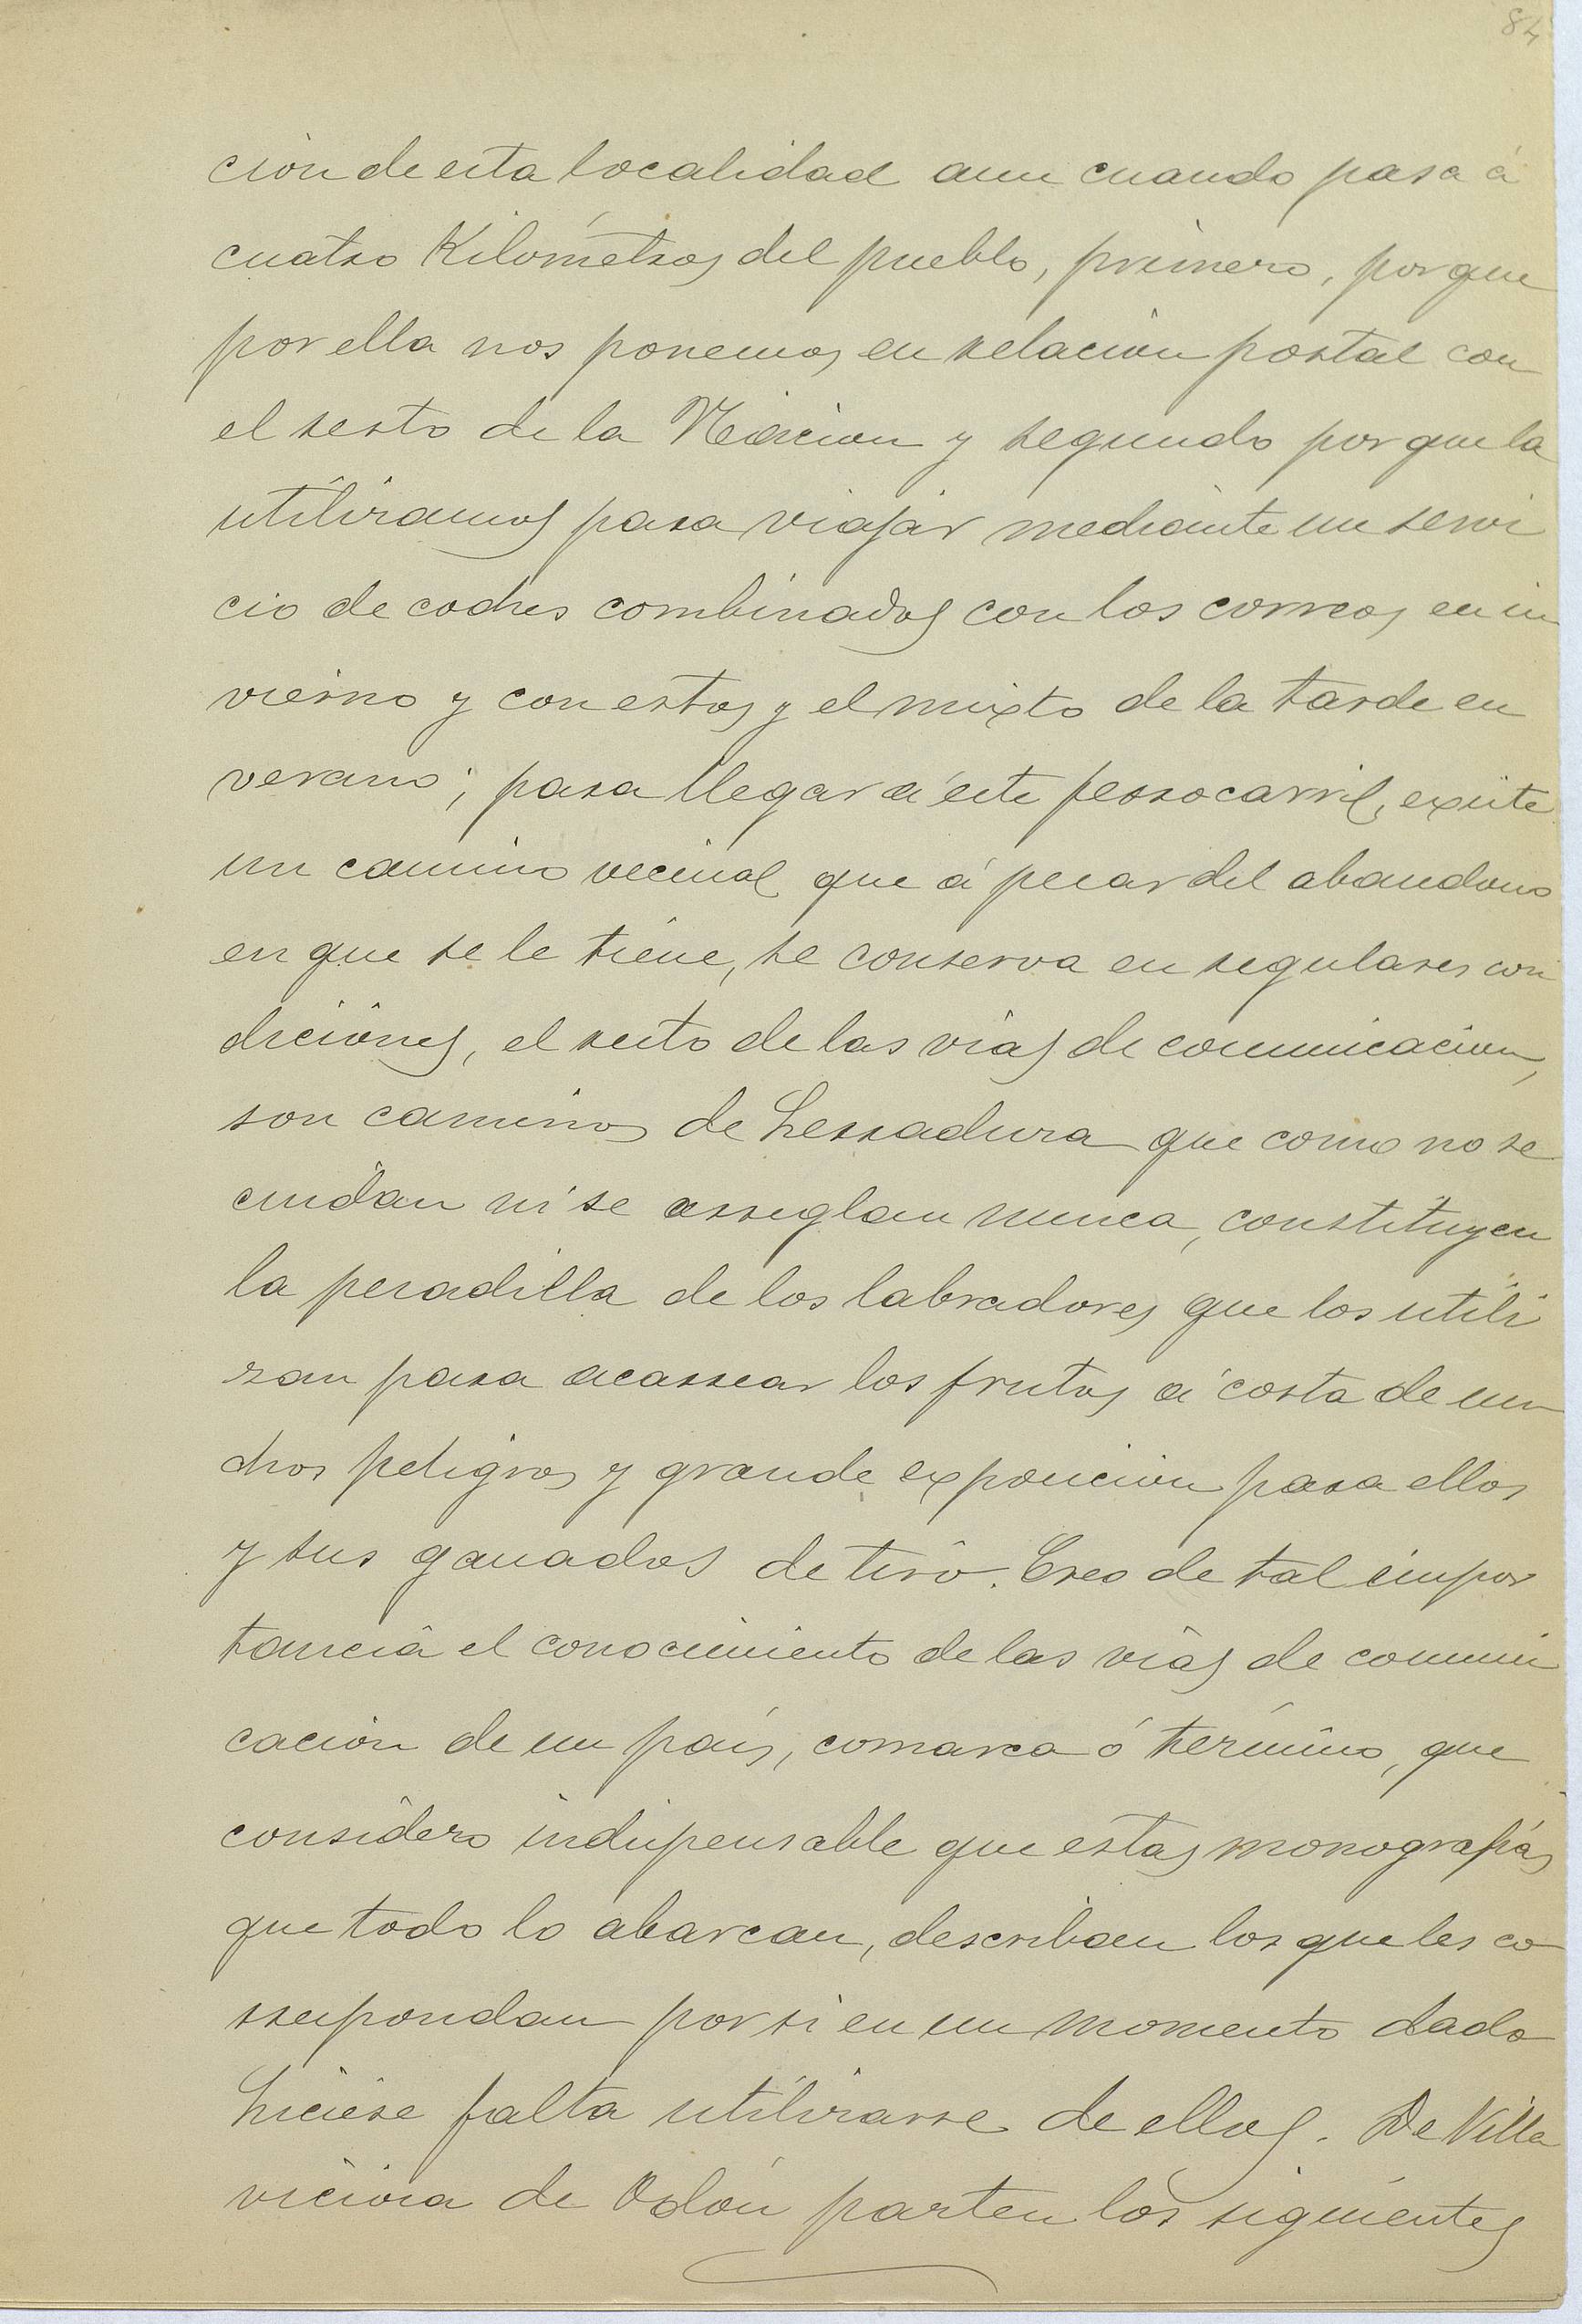 84
ción de esta localidad aun cuando pasa á
cuatro Kilómetros del pueblo, primero, porque
por ella nos ponemos en relacion postal con
el resto de la Nacion y segundo por que la
utilizamos para viajar mediante un servi
cio de coches combinados con los correos en in
vierno y con estos y el mixto de la tarde en
verano; para llegar á éste ferrocarril, existe
un camino vecinal que á pesar del abandono
en que se le tiene, se conserva en regulares con
diciones, el resto de las vias de comunicacion,
son caminos de herradura que como no se
cuidan ni se arreglan nunca, constituyen
la pesadilla de los labradores que los utili
zan para acarrear los frutos á costa de mu
chos peligros y grande exposicion para ellos
y sus ganados de tiro. Creo de tal impor
tancia el conocimiento de las vias de comuni
cación de un país, comarca ó término, que
considero indispensable que estas monografías
que todo lo abarcan, describan los que les co
rrespondan por si en un momento dado
hiciese falta utilizarse de ellos. De Villa
viciosa de Odón parten los siguientes